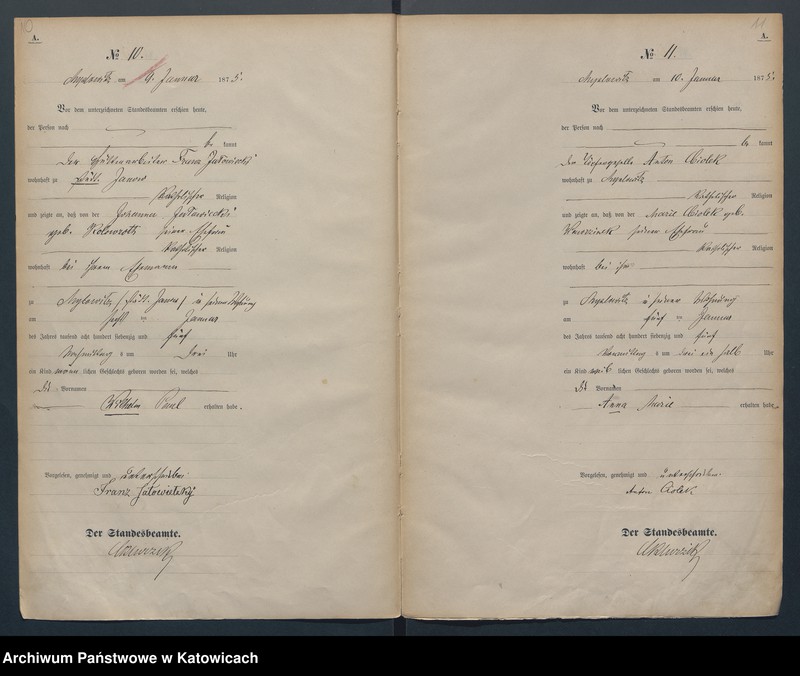 10
A.
№ 10.
Myslowitz am 9. Januar 1875.
Vor dem unterzeichneten Standesbeamten erschien heute,
der Person nach
be kannt
der Hüttenarbeiter Franz
wohnhaft zu Janow
Katholischer Religion
und zeigte an, daß von der Johanna
geb. seiner Ehefrau
Katholischer Religion
wohnhaft bei ihrem Ehemann
zu Myslowitz in seiner Wohnung
am Januar
des Jahres tausend acht hundert siebenzig und fünf
Nachmittag s um drei Uhr
ein Kind männ lichen Geschlechts geboren worden sei, welches
die Vornamen
Wilhelm Paul erhalten habe.
Vorgelesen, genehmigt und unterschrieben
Franz
Der Standesbeamte.
11
A.
№ 11.
Myslowitz am 10. Januar 1875.
Vor dem unterzeichneten Standesbeamten erschien heute,
der Person nach
be kannt
der Anton Ciolek
wohnhaft zu Myslowitz
Katholischer Religion
und zeigte an, daß von der Marie Ciolek geb.
seiner Ehefrau
Katholischer Religion
wohnhaft bei ihm
zu Myslowitz in seiner Wohnung
am fünf ten Januar
des Jahres tausend acht hundert siebenzig und fünf
Vormittag s um drei ein halb Uhr
ein Kind weib lichen Geschlechts geboren worden sei, welches
die Vornamen
Anna Marie erhalten habe
Vorgelesen, genehmigt und unterschrieben.
Anton Ciolek
Der Standesbeamte.
Archiwum Państwowe w Katowicach